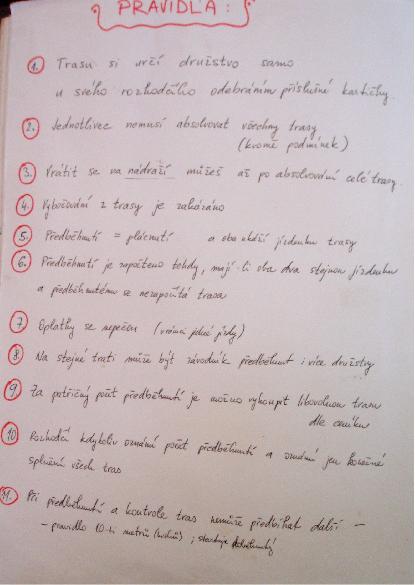 PRAVIDLA:
1. Trasu si určí družstvo samo
u svého rozhodčího odebráním příslušné kartičky.
2. Jednotlivec nemusí absolvovat všechny trasy
(kromě podmínek)
3. Vrátit se na nádraží můžeš až po absolvování celé trasy.
4. Vybočování z trasy je zakázáno
5. Předběhnutí = plácnutí a oba ukáží jízdenku trasy
6. Předběhnutí je započteno tehdy, mají-li oba dva stejnou jízdenku
a předběhnutému se nezapočítá trasa
7. Oplatky se nepečou (vrámci jedné jízdy)
8. Na stejné trati může být závodník předběhnut i více družstvy
9. Za patřičný počet předběhnutí je možno vykoupit libovolnou trasu
dle ceníku
10. Rozhodčí kdykoliv oznámí počet předběhnutí a oznámí jen konečné
splnění všech tras
11. Při předběhnutí a kontrole tras nemůže předbíhat další –
– pravidlo 10-ti metrů ; startuje